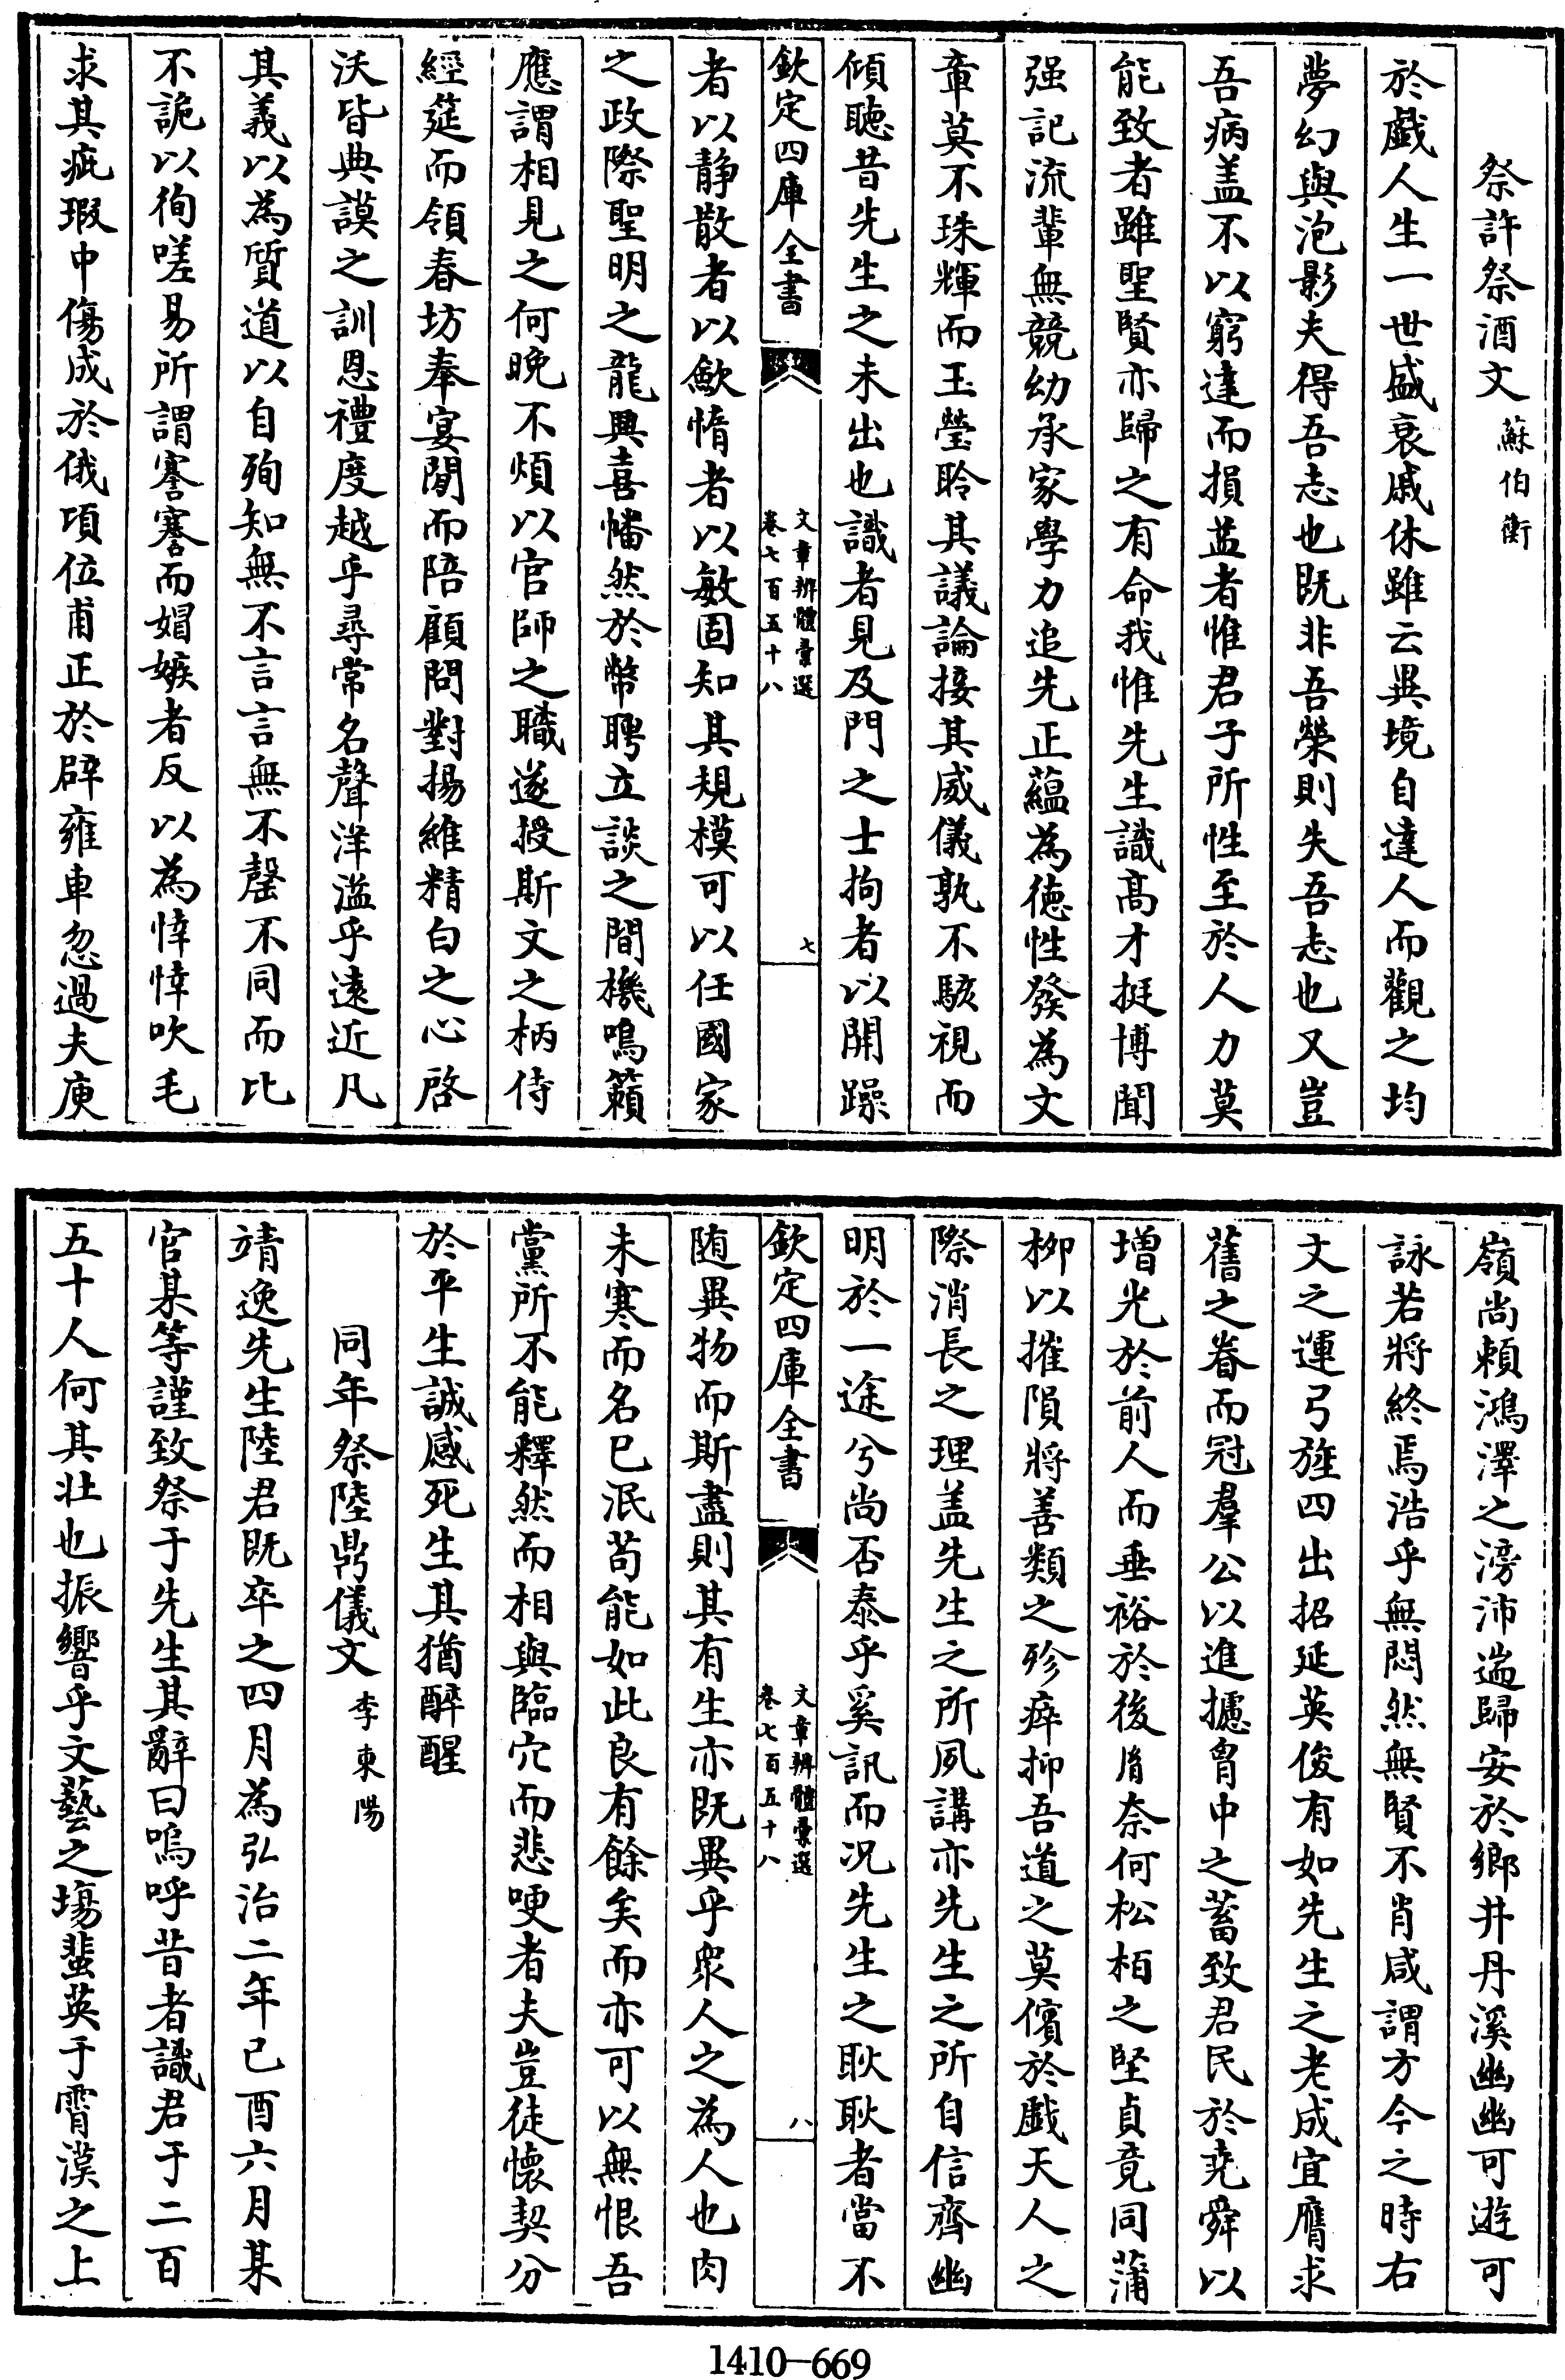 祭許祭酒文 蘇伯衡
於戲人生一世盛衰戚休雖云異境自達人而觀之均
夢幻與泡影夫得吾志也既非吾榮則失吾志也又豈
吾病盖不以窮達而損益者惟君子所性至於人力莫
能致者雖聖賢亦歸之有命我惟先生識髙才挺博聞
强記流輩無競幼承家學力追先正藴為徳性發為文
章莫不珠輝而玉瑩聆其議論接其威儀孰不駭視而
傾聽昔先生之未出也識者見及門之士拘者以開躁
欽定四庫全書
文章辨體彙選
卷七百五十八
七
者以静散者以歛惰者以敏固知其規模可以任國家
之政際聖明之龍興喜幡然於幣聘立談之間機鳴籟
應謂相見之何晚不煩以官師之職遂授斯文之柄侍
經筵而領春坊奉宴閒而陪顧問對揚維精白之心啓
沃皆典謨之訓恩禮度越乎尋常名聲洋溢乎遠近凡
其義以為質道以自殉知無不言言無不罄不同而比
不詭以徇嗟易所謂謇謇而媢嫉者反以為悻悻吹毛
求其疵瑕中傷成於俄項位甫正於辟雍車忽過夫庾
嶺尚頼鴻澤之滂沛遄歸安於鄉井丹溪幽幽可遊可
詠若將終焉浩乎無悶然無賢不肖咸謂方今之時右
文之運弓旌四出招延英俊有如先生之老成宜膺求
舊之眷而冠羣公以進攄胷中之蓄致君民於堯舜以
增光於前人而垂裕於後胤奈何松柏之堅貞竟同蒲
柳以摧隕將善類之殄瘁抑吾道之莫儐於戲天人之
際消長之理盖先生之所夙講亦先生之所自信齊幽
明於一途兮尚否泰乎奚訊而况先生之耿耿者當不
欽定四庫全書
文章辨體彙選
卷七百五十八
八
随異物而斯盡則其有生亦既異乎衆人之為人也肉
未寒而名已泯苟能如此良有餘矣而亦可以無恨吾
黨所不能釋然而相與臨穴而悲哽者夫豈徒懷契分
於平生誠感死生其猶醉醒
同年祭陸鼎儀文 李東陽
靖逸先生陸君既卒之四月為弘治二年己酉六月某
官某等謹致祭于先生其辭曰嗚呼昔者識君于二百
五十人何其壯也振響乎文藝之場蜚英于霄漢之上
1410—669